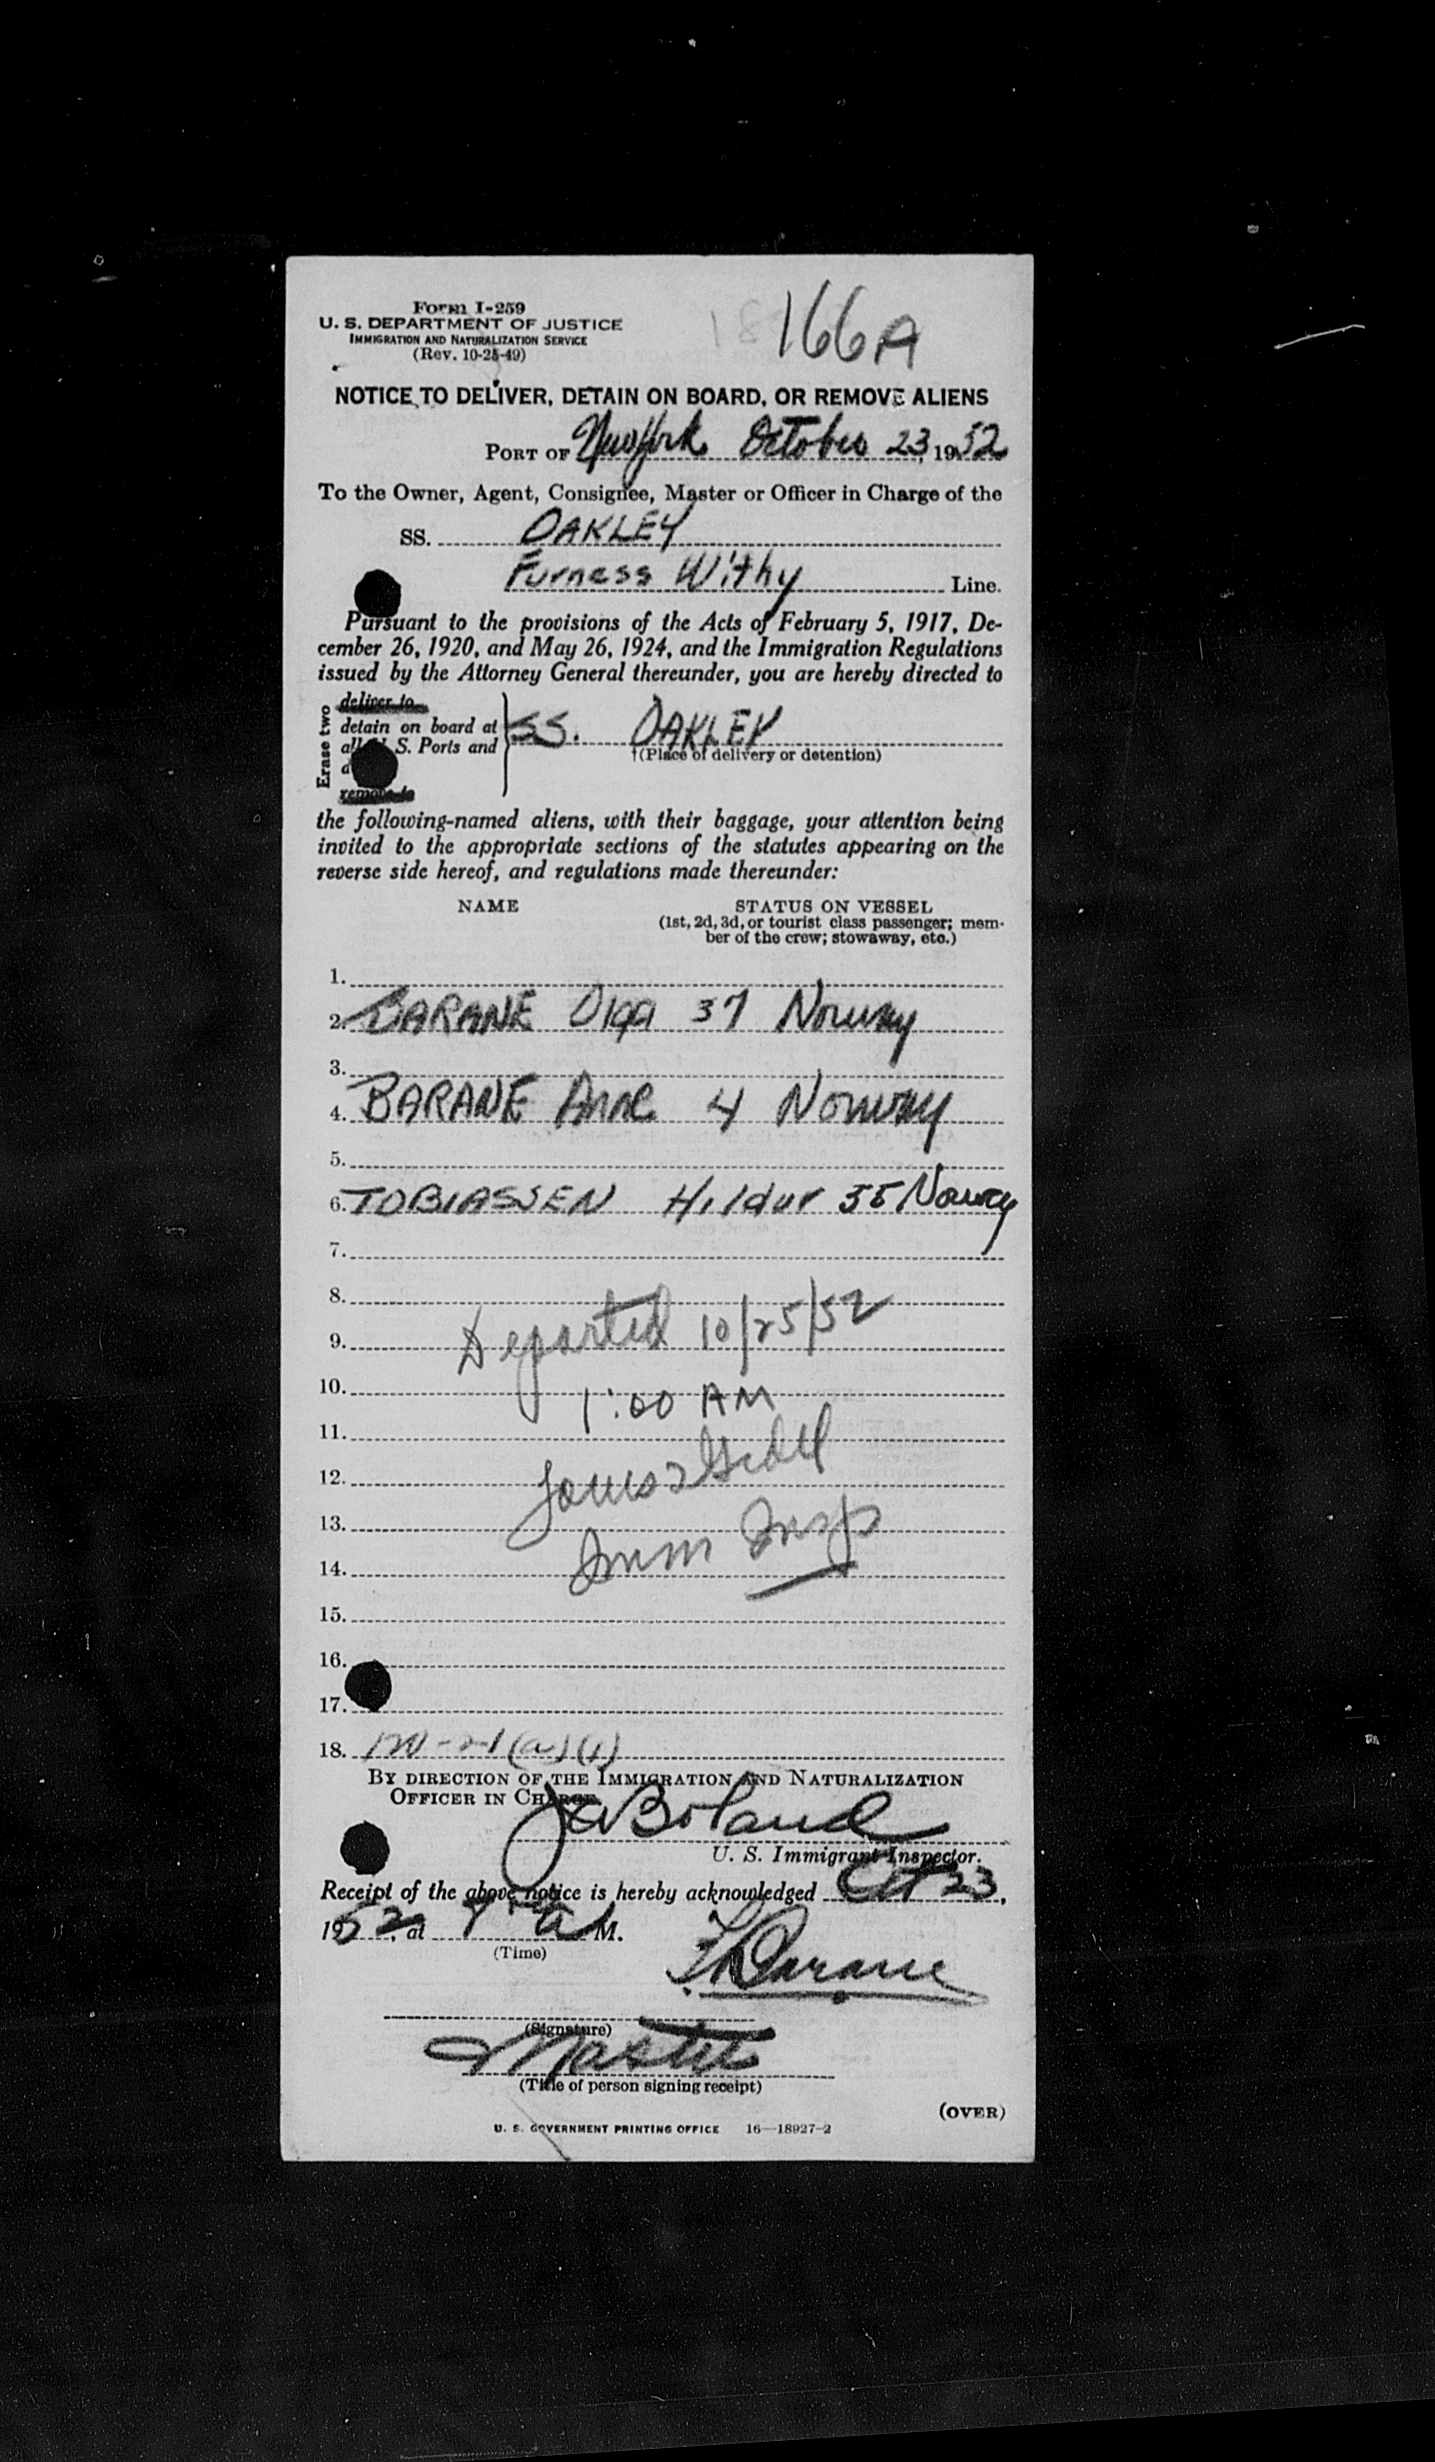 Form I-259
U. S. DEPARTMENT OF JUSTICE
IMMIGRATION AND NATURALIZATION SERVICE
(Rev. 10-25-49)
166A
NOTICE TO DELIVER, DETAIN ON BOARD, OR REMOVE ALIENS
PORT OF New York October 23, 1952
To the Owner, Agent, Consignee, Master or Officer in Charge of the
SS. OAKLEY
Furness Withy Line.
Pursuant to the provisions of the Acts of February 5, 1917, De-
cember 26, 1920, and May 26, 1924, and the Immigration Regulations
issued by the Attorney General thereunder, you are hereby directed to
Erase two
deliver to
detain on board at
all U. S. Ports and
remove to
SS. OAKLEY
†(Place of delivery or detention)
the following-named aliens, with their baggage, your attention being
invited to the appropriate sections of the statutes appearing on the
reverse side hereof, and regulations made thereunder:
NAME STATUS ON VESSEL
(1st, 2d, 3d, or tourist class passenger; mem-
ber of the crew; stowaway, etc.)
1.
2. BARANE Olga 37 Norway
3.
4. BARANE Anne 4 Norway
5.
6. TOBIASSEN Hildur 35 Norway
7.
8.
9. Departed 10/25/52
10. 1:00 AM
11.
12. James
13.
14. Imm Insp
15.
16.
17.
18.
BY DIRECTION OF THE IMMIGRATION AND NATURALIZATION
OFFICER IN CHARGE.
JA Boland
U. S. Immigrant Inspector.
Receipt of the above notice is hereby acknowledged Oct 23,
1952, at 9 a M.
(Time)
Barane
(Signature)
Master
(Title of person signing receipt)
(OVER)
U. S. GOVERNMENT PRINTING OFFICE 16—18927-2